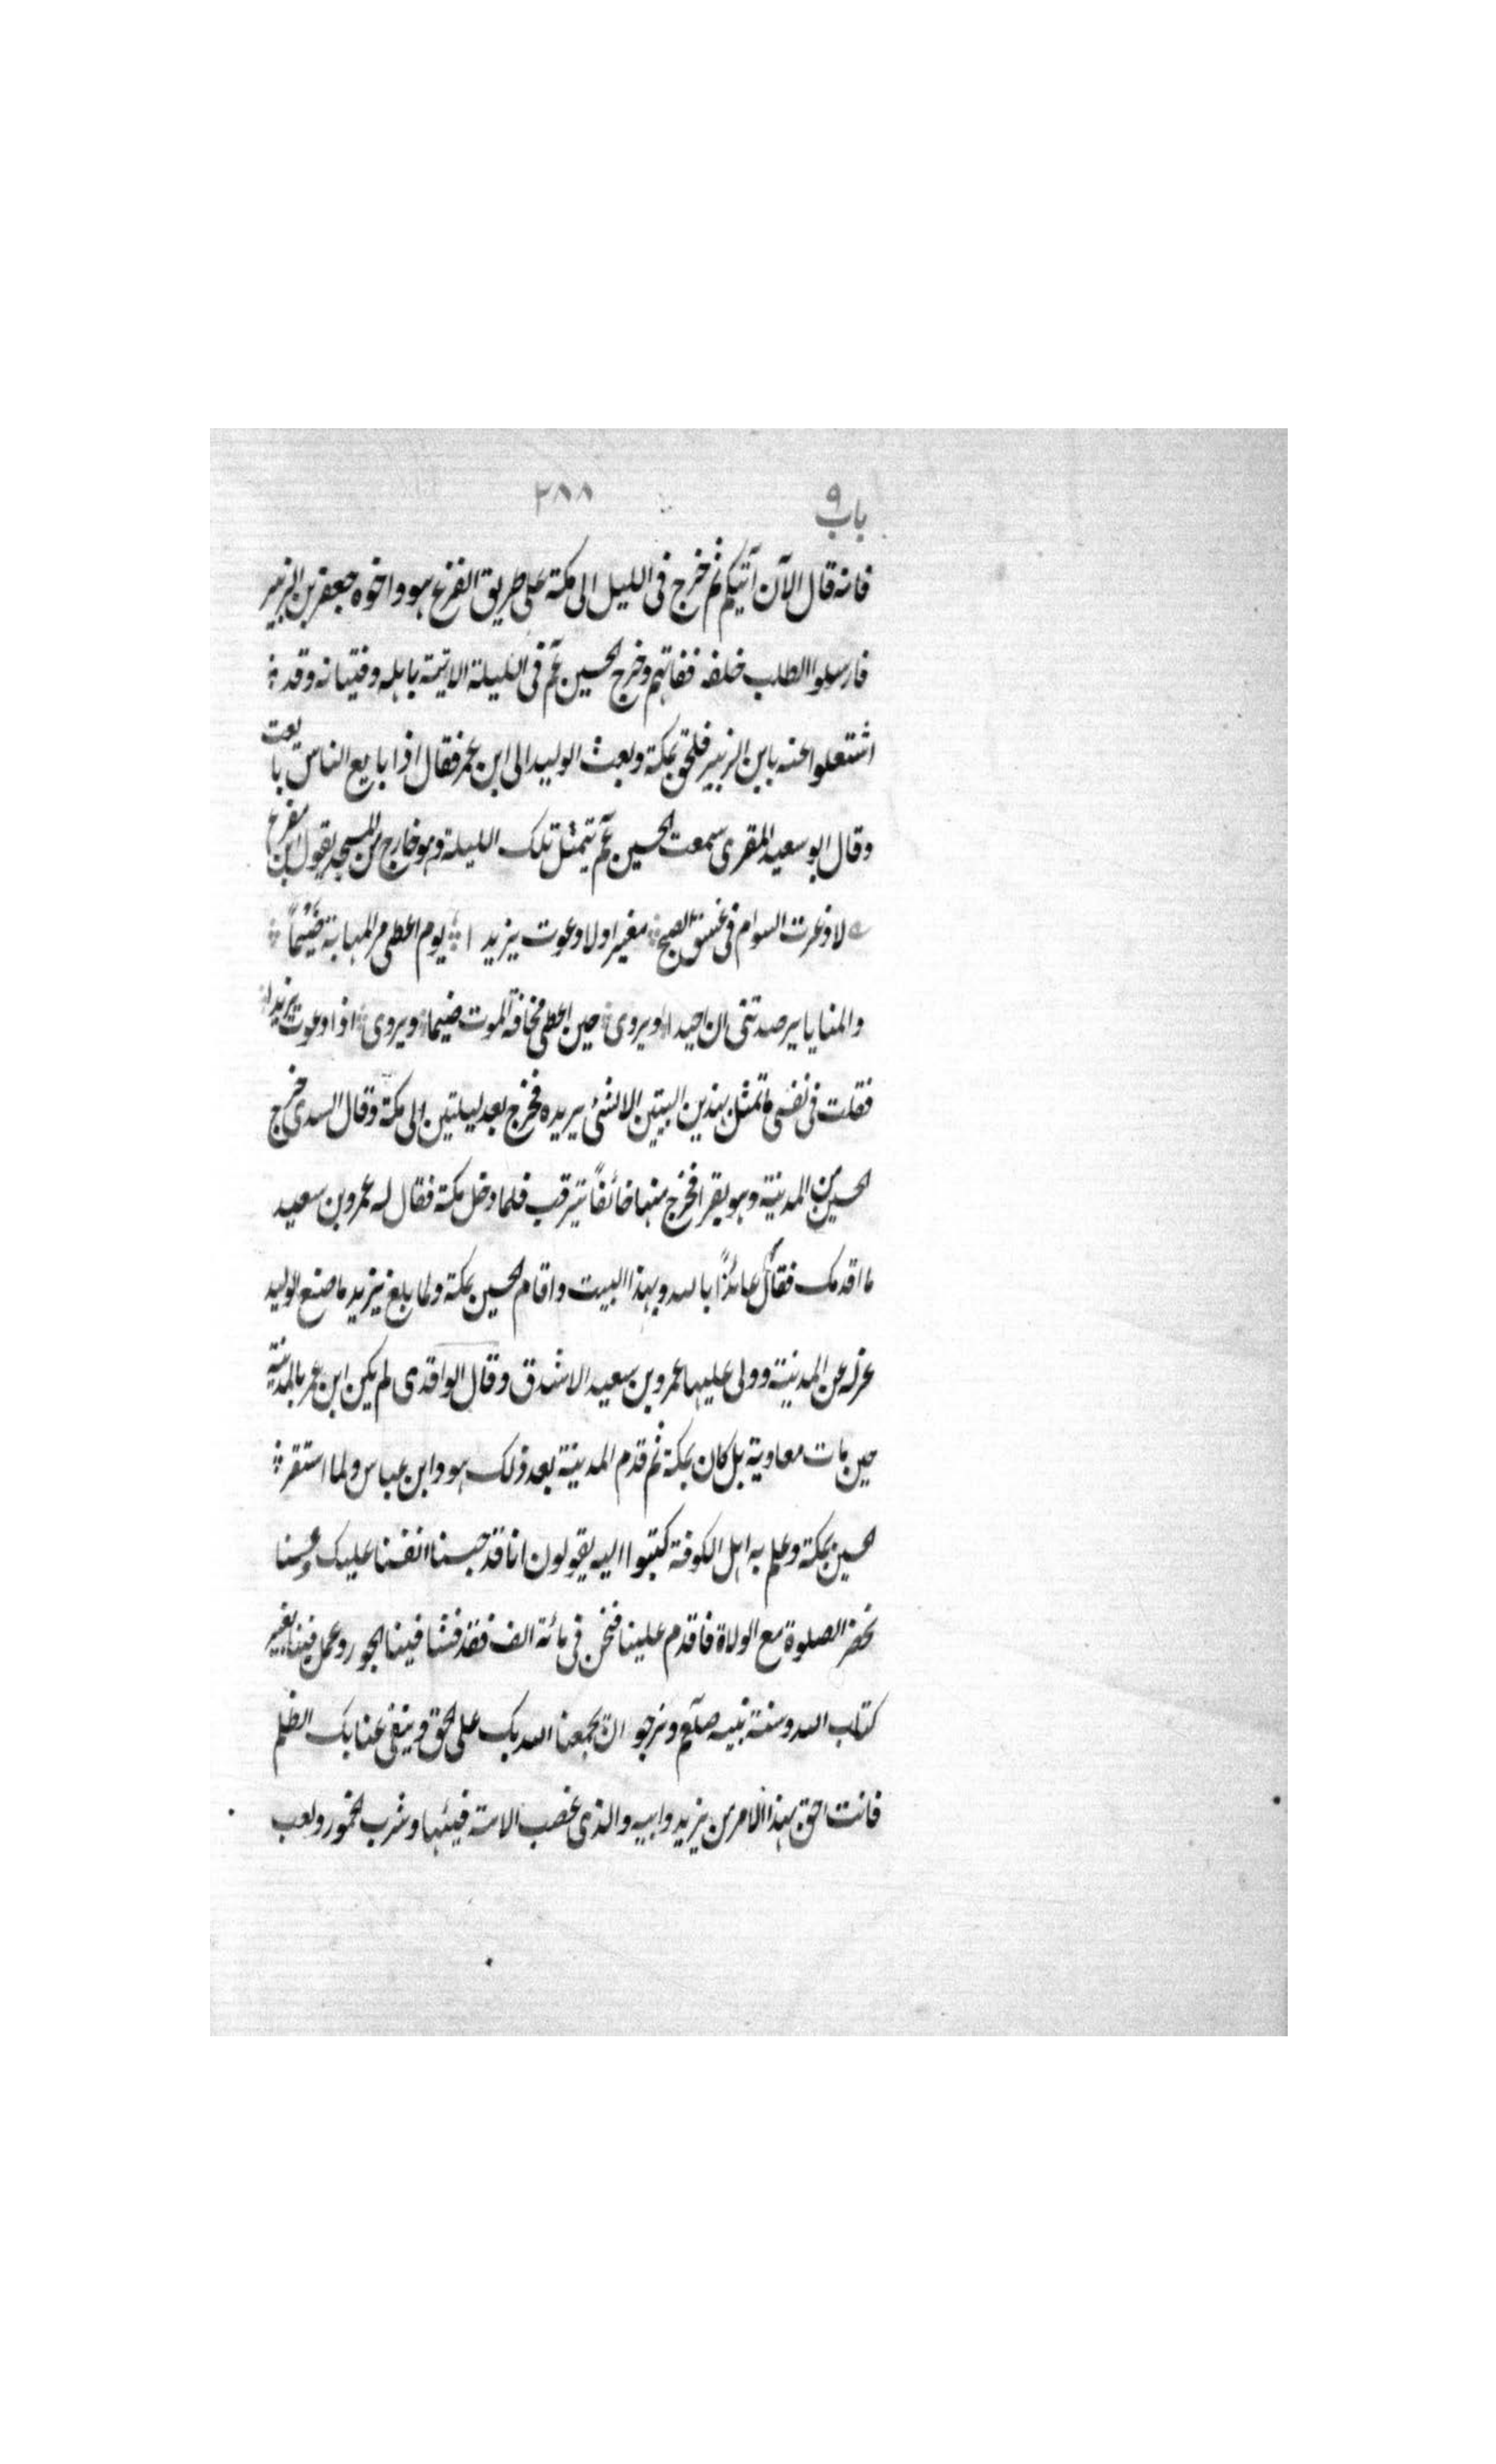 باب ٩ ٢٨٨
فانه قال الآن آتيكم ثم خرج فى الليل الى مكة على طريق الفرع هو واخوه جعفر بن الزبير
فارسلوا الطلب خلفه ففاتهم وخرج الحسين عم فى الليلة الاتية باهله وفتيانه وقد
اشتغلوا عنه بابن الزبير فلحق بمكة وبعث الوليد الى ابن عمر فقال اذا بايع الناس بايعت
وقال ابو سعيد المقرى سمعت الحسين عم يتمثل تلك الليلة وهو خارج من المسجد بقول ابن مفرغ
لا ذعرت السوام فى غسق الصبح مغيرا ولا دعوت يزيدا يوم اعطى من المهابة ضيماً
والمنايا يرصدتنى ان احيدا ويروى حين اعطى مخافة الموت ضيما ويروى اذا دعوت يزيدا
فقلت فى نفسى ما تمثل بهذين البيتين الا لشئ يريده فخرج بعد ليلتين الى مكة وقال السدى خرج
الحسين من المدينة وهو يقرا فخرج منها خائفاً يترقب فلما دخل مكة فقال له عمرو بن سعيد
ما اقدمك فقال عائذاً بالله وبهذا البيت واقام الحسين بمكة ولما بلغ يزيد ما صنع الوليد
عزله عن المدينة وولى عليها عمرو بن سعيد الاشدق وقال الواقدى لم يكن ابن عمر بالمدينة
حين مات معاوية بل كان بمكة ثم قدم المدينة بعد ذلك هو وابن عباس ولما استقر
الحسين بمكة وعلم به اهل الكوفة كتبوا اليه يقولون انا قد حبسنا انفسنا عليك ولسنا
نحضر الصلوة مع الولاة فاقدم علينا فنحن فى مائة الف فقد فشا فينا الجور وعمل فينا بغير
كتاب الله وسنة نبيه صلعم ونرجو ان يجمعنا الله بك على الحق وينفى عنا بك الظلم
فانت احق بهذا الامر من يزيد وابيه والذى غصب الامة فيئها وشرب الخمور ولعب